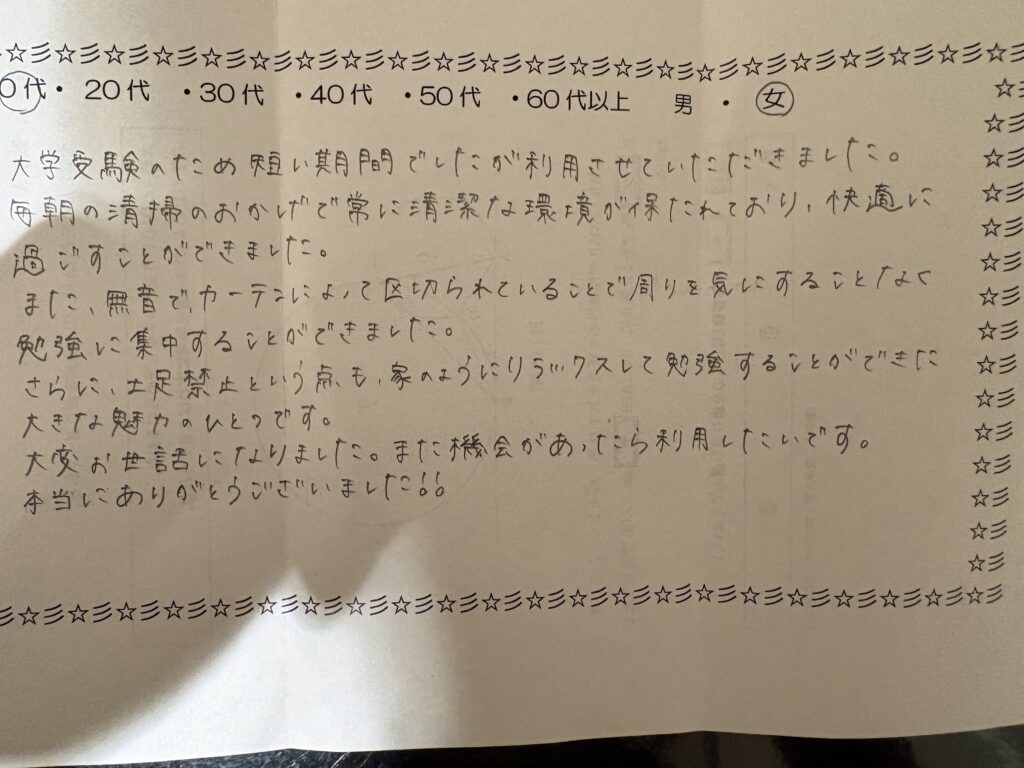 ☆彡☆彡☆彡☆彡☆彡☆彡☆彡☆彡☆彡☆彡☆彡☆彡☆彡☆彡☆彡☆彡☆彡☆彡☆彡☆彡☆彡
0代・ 20代 ・30代 ・40代 ・50代 ・60代以上 男 ・ 女
大学受験のため短い期間でしたが利用させていただきました。
毎朝の清掃のおかげで常に清潔な環境が保たれており、快適に
過ごすことができました。
また、無音で、カーテンによって区切られていることで周りを気にすることなく
勉強に集中することができました。
さらに、土足禁止という点も、家のようにリラックスして勉強することができた
大きな魅力のひとつです。
大変お世話になりました。また機会があったら利用したいです。
本当にありがとうございました!!
☆彡☆彡☆彡☆彡☆彡☆彡☆彡☆彡☆彡☆彡☆彡☆彡☆彡☆彡☆彡☆彡☆彡☆彡☆彡☆彡☆彡